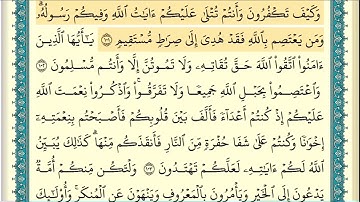 وَكَيْفَ تَكْفُرُونَ وَأَنتُمْ تُتْلَىٰ عَلَيْكُمْ ءَايَـٰتُ ٱللَّهِ وَفِيكُمْ رَسُولُهُۥ ۗ
وَمَن يَعْتَصِم بِٱللَّهِ فَقَدْ هُدِىَ إِلَىٰ صِرَٰطٍ مُّسْتَقِيمٍ ١٠١ يَـٰٓأَيُّهَا ٱلَّذِينَ
ءَامَنُوا۟ ٱتَّقُوا۟ ٱللَّهَ حَقَّ تُقَاتِهِۦ وَلَا تَمُوتُنَّ إِلَّا وَأَنتُم مُّسْلِمُونَ ١٠٢
وَٱعْتَصِمُوا۟ بِحَبْلِ ٱللَّهِ جَمِيعًا وَلَا تَفَرَّقُوا۟ ۚ وَٱذْكُرُوا۟ نِعْمَتَ ٱللَّهِ
عَلَيْكُمْ إِذْ كُنتُمْ أَعْدَآءً فَأَلَّفَ بَيْنَ قُلُوبِكُمْ فَأَصْبَحْتُم بِنِعْمَتِهِۦٓ
إِخْوَٰنًا وَكُنتُمْ عَلَىٰ شَفَا حُفْرَةٍ مِّنَ ٱلنَّارِ فَأَنقَذَكُم مِّنْهَا ۗ كَذَٰلِكَ يُبَيِّنُ
ٱللَّهُ لَكُمْ ءَايَـٰتِهِۦ لَعَلَّكُمْ تَهْتَدُونَ ١٠٣ وَلْتَكُن مِّنكُمْ أُمَّةٌ
يَدْعُونَ إِلَى ٱلْخَيْرِ وَيَأْمُرُونَ بِٱلْمَعْرُوفِ وَيَنْهَوْنَ عَنِ ٱلْمُنكَرِ ۚ وَأُو۟لَـٰٓئِكَ